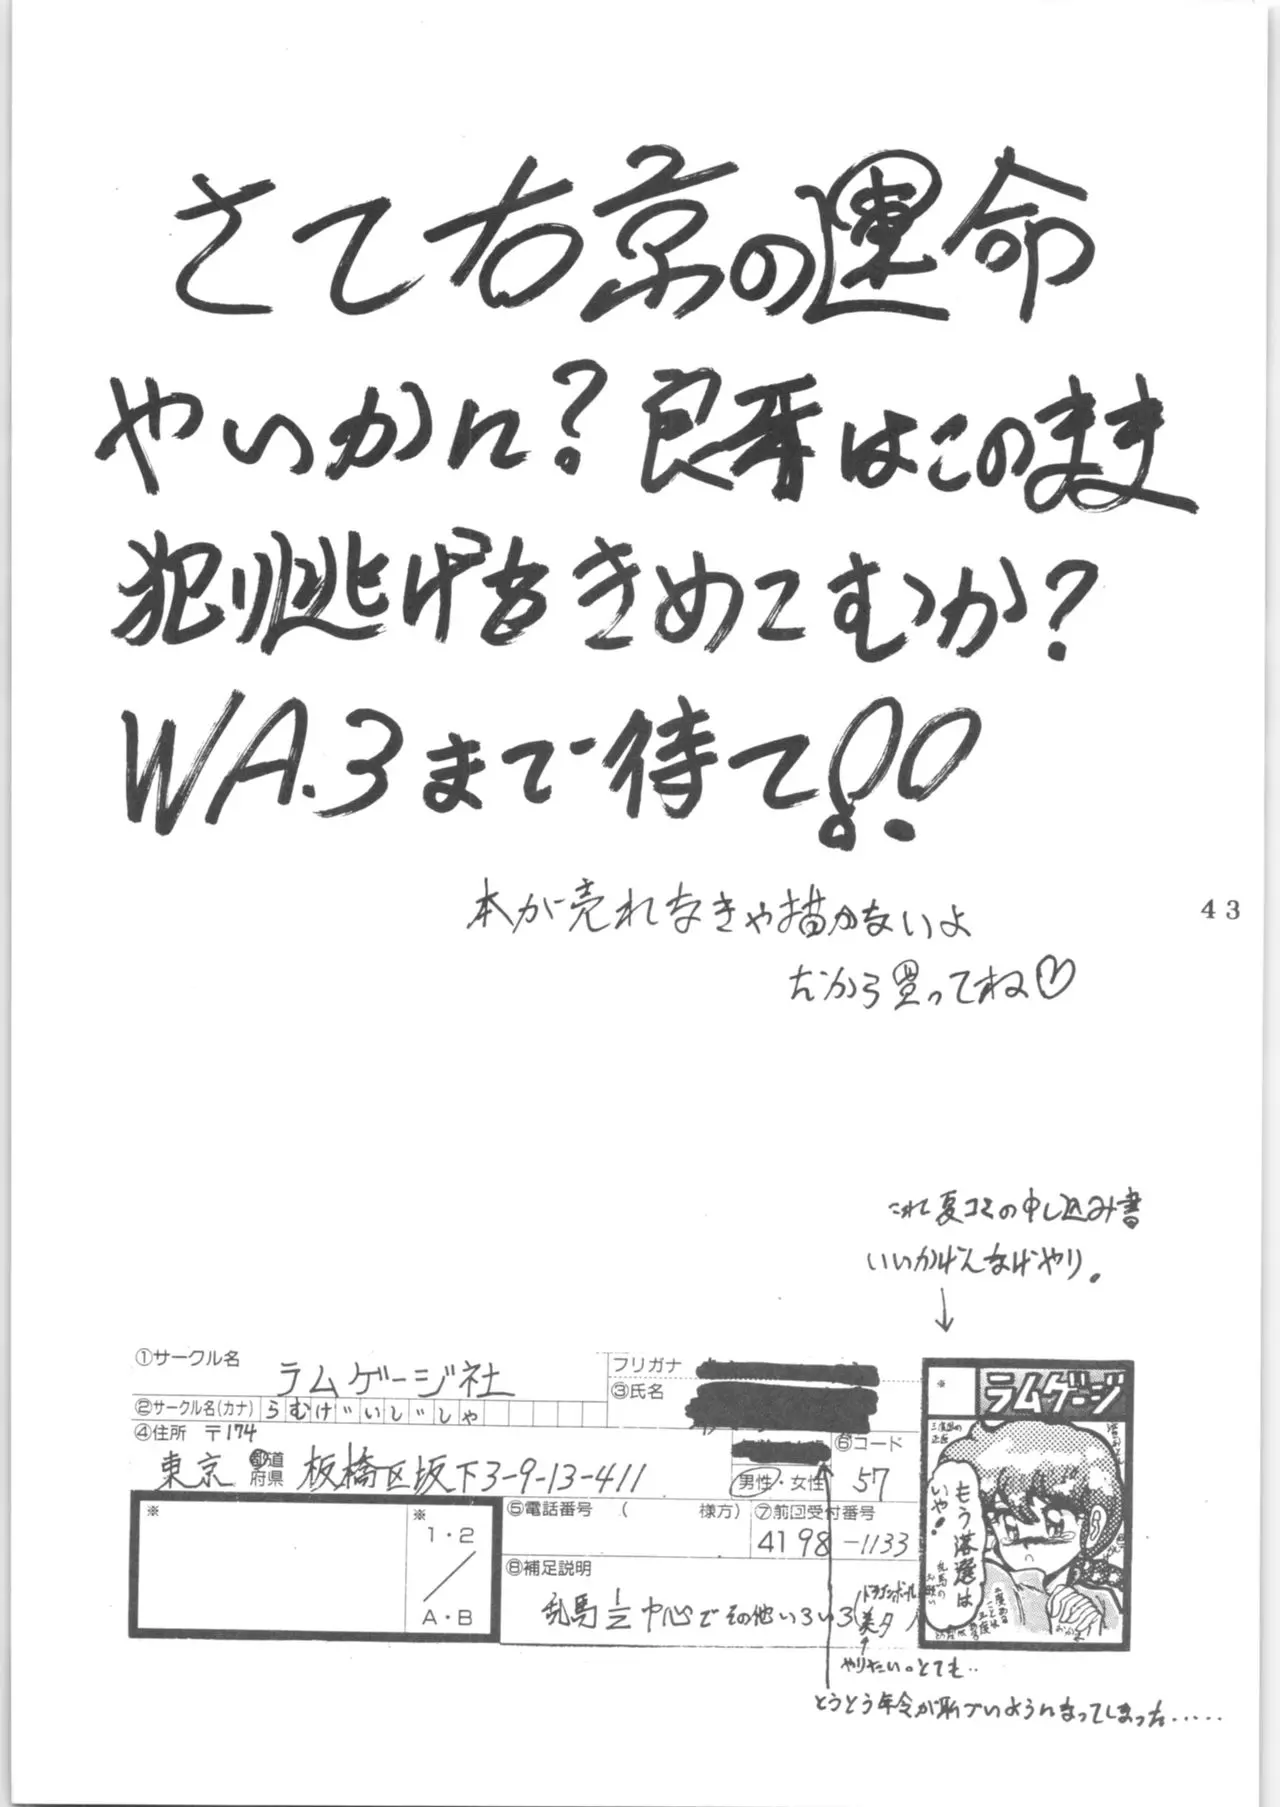 さて右京の運命
やいかに?良牙はこのまま
犯り逃げをきめてむか?
WA.3まで待て!!
本が売れなきゃ描かないよ
だから買ってね♡
43
これ夏コミの申し込み書
いいかげんなげやり。
↓
①サークル名 ラムゲージ社
フリガナ
②サークル名(カナ) らむげいじしゃ
③氏名
④住所 〒174
東京 都道府県 板橋区坂下3-9-13-411
男性・女性
⑥コード 57
⑤電話番号 ( 様方)
⑦前回受付番号 4198-1133
※
※
1・2
A・B
⑧補足説明
乱馬½中心でその他いろいろ(ドラゴンボール 美夕)
やりたい。とても..
とうとう年令が恥づいようになってしまった......
※
ラムゲージ
もう落選は
いや!
乱馬の
お願い